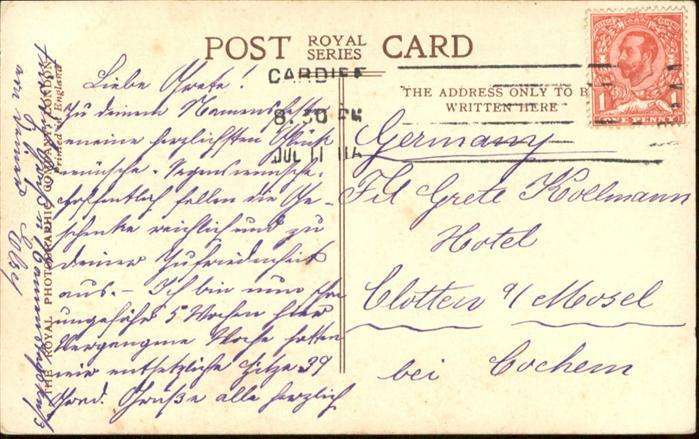 POST ROYAL SERIES CARD
THE ROYAL PHOTOGRAPHIC COMPANY, LONDON
Printed in England
THE ADDRESS ONLY TO B
WRITTEN HERE
CARDIFF
8.30 PM
JUL 11 11A
1 ONE PENNY
Liebe Grete!
Zu deinem Namensfeste
meine herzlichsten Glück
wünsche. Segenswünsche.
Hoffentlich fallen die Ge-
schenke reichlich und zu
deiner Zufriedenheit
aus. – Ich bin nun schon
ungefähr 5 Wochen hier
Vergangene Woche hatten
wir entsetzliche Hitze 39
Grad. Grüße alle herzlich
Germany
Frl Grete Kollmann
Hotel
Clotten a/ Mosel
bei Cochem